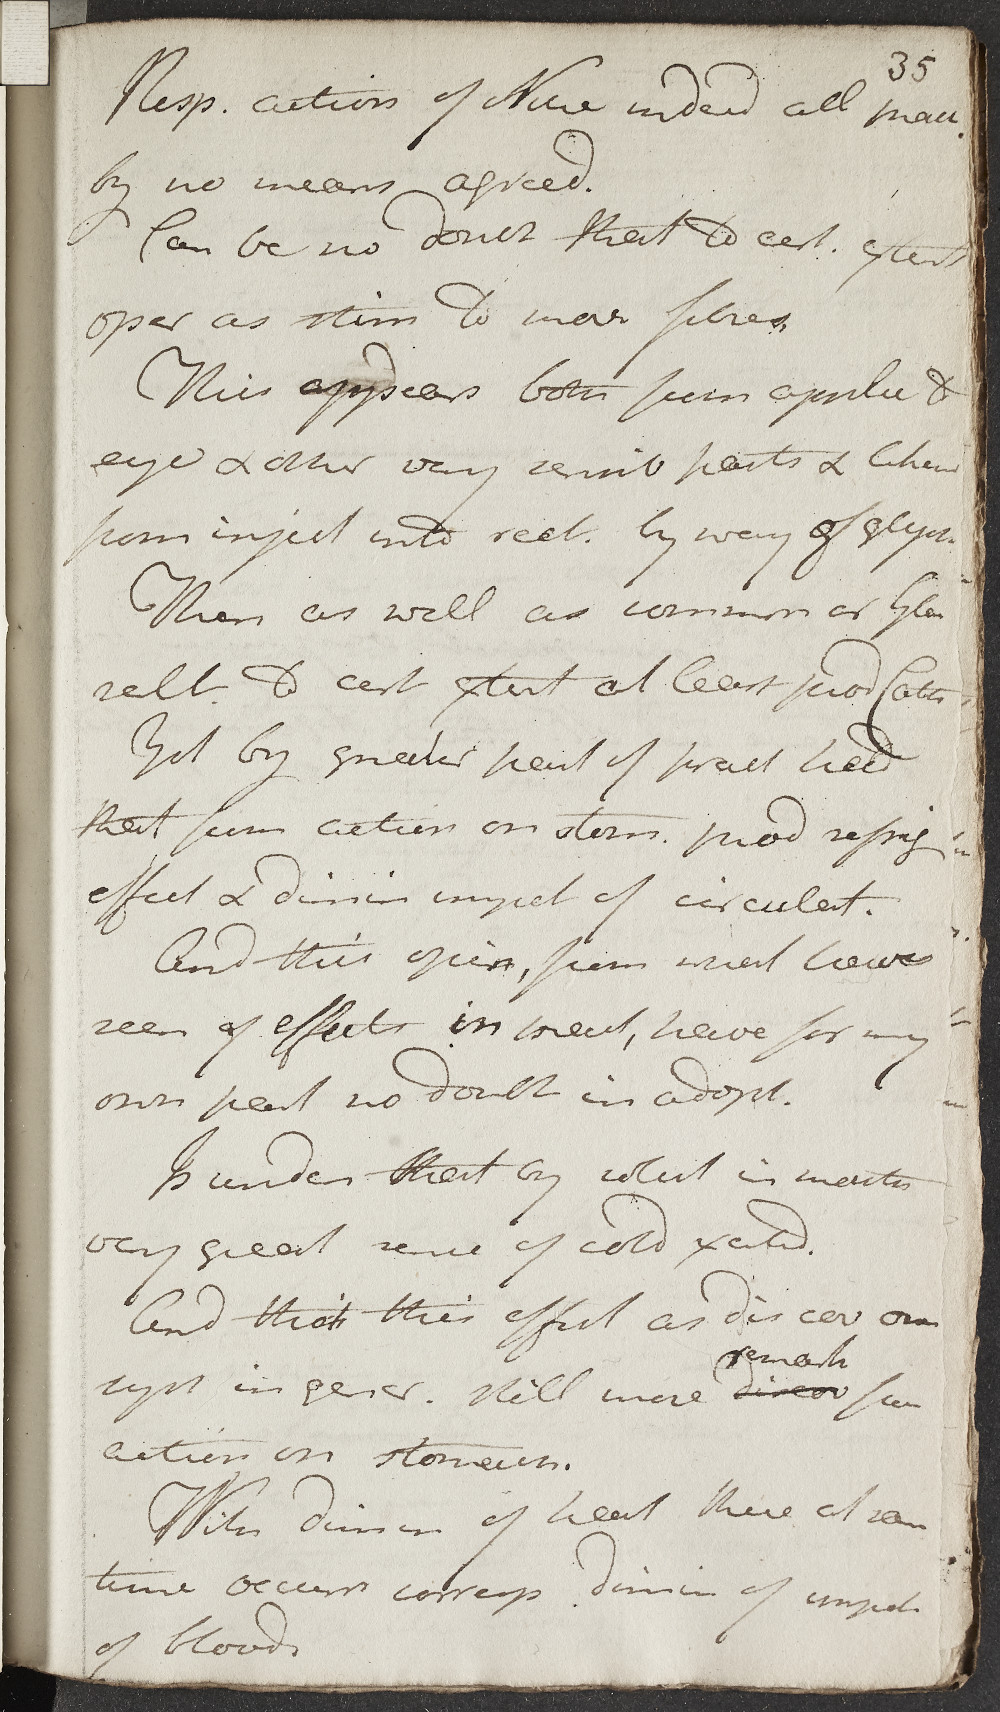 35
Resp. action of Nitre indeed all pract.
by no means agreed.
Can be no doubt that to cert. extent
oper as stim to mov fibres.
This appears both from applic to
eye & other very sensib parts & likew
from inject into rect. by way of glyst.
Then as well as common or Glau
salt to cert extent at least prod Cathar
Yet by greater part of pract held
that from action on stom. prod refrig
effect & dimin impet of circulat.
And this opin, from what have
seen of effects in pract, have for my
own part no doubt in adopt.
Is under that by solut in mouth
very great sense of cold excited.
And that this effect as discov on
syst in gener. still more remark from
action on stomach.
With dimin of heat there at sam
time occurs corresp dimin of impet
of blood.